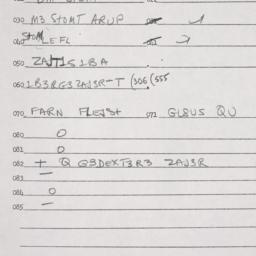 030 M3 STOMT ARUP
040 STOM LEFL
050 ZAJT1S1BA
060 1B3RG3ZAJ3R-T (306 (555
070 FARN FLEJST 071 GLSUS QU
080 O
081 O
082 + Q G3DEXT3R3 ZAJ3R
083 —
084 O
085 —